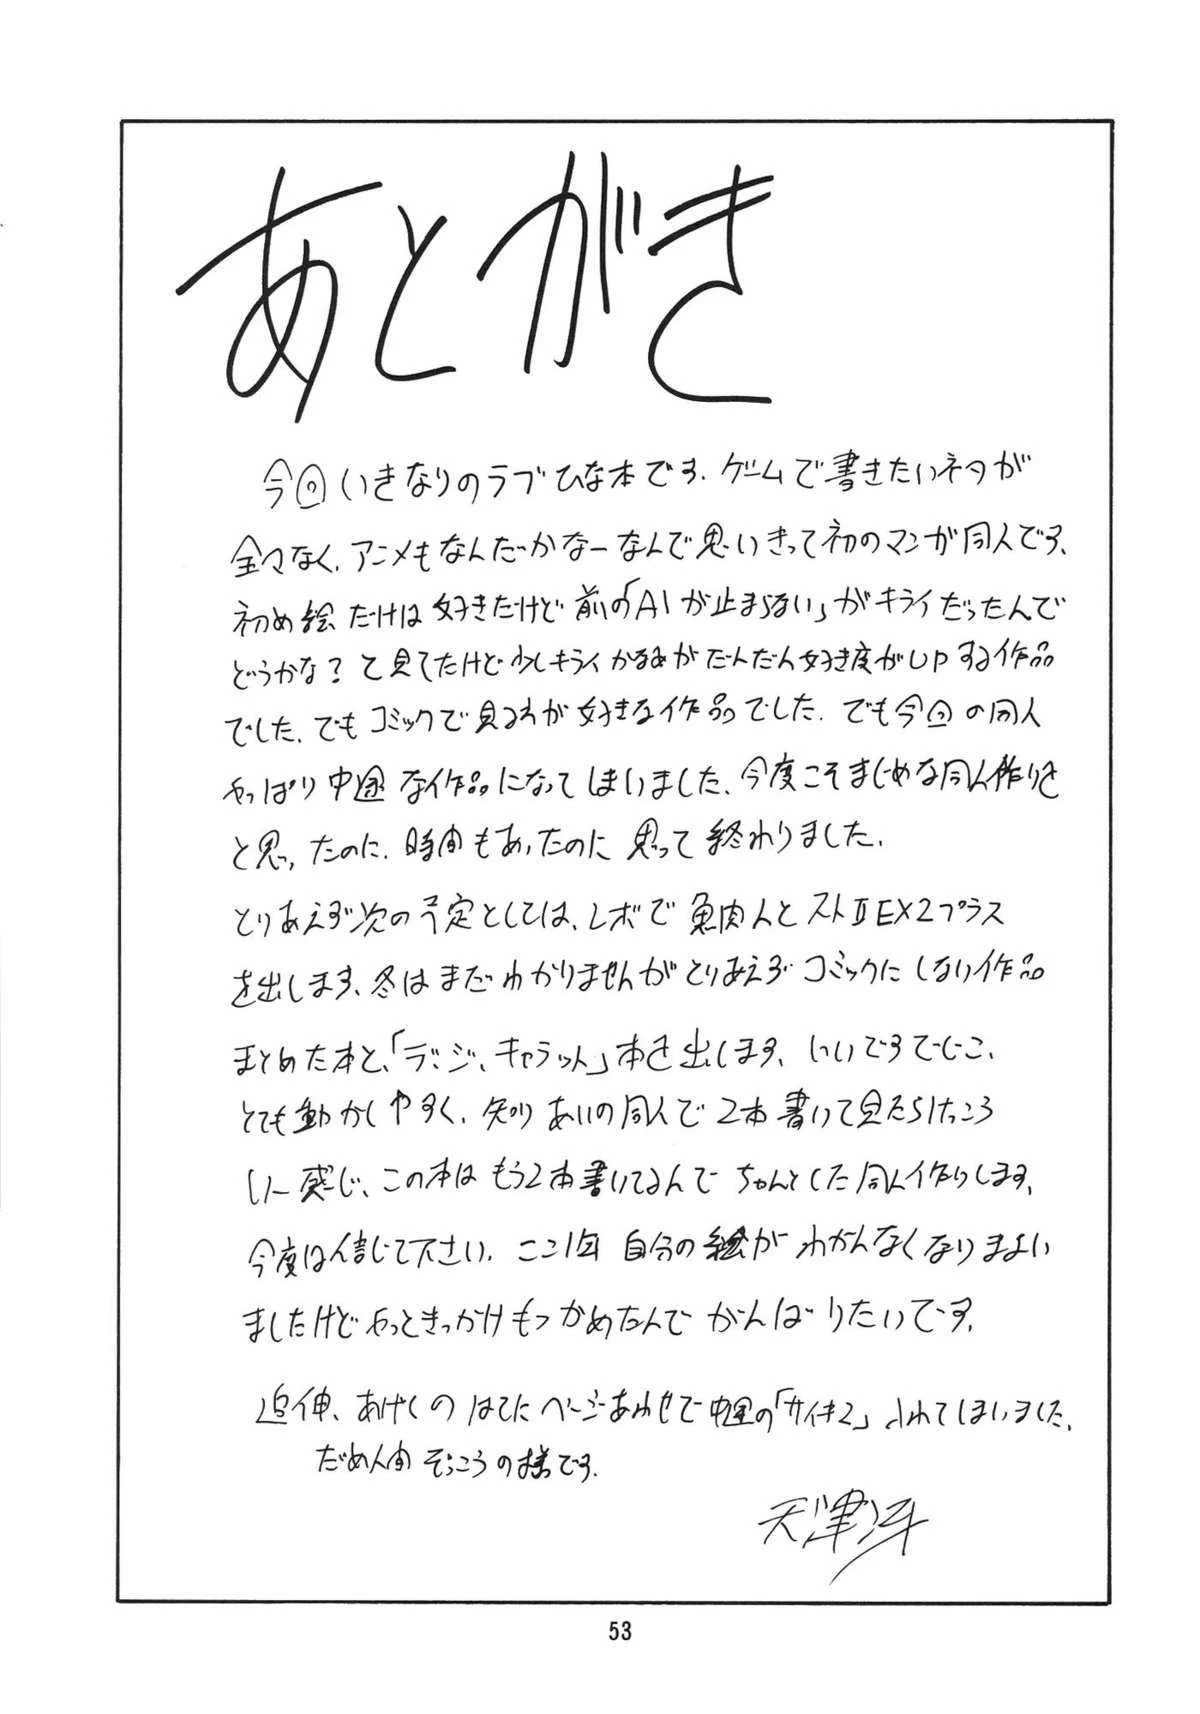 あとがき
今回いきなりのラブひな本です.ゲームで書きたいネタが
全々なく.アニメもなんだかなーなんで思いきって初のマンガ同人です.
初め絵だけは好きだけど前の「AIが止まらない」がキライだったんで
どうかな?と見てたけど少しキライかるみがだんだん好き度がUPする作品
でした.でもコミックで見るわが好きな作品でした.でも今回の同人
やっぱり中途な作品になってしまいました.今度こそまじめな同人作りを
と思ったのに.時間もあったのに思って終わりました.
とりあえず次の予定としては、レボで魚肉人とストⅡEX2プラス
を出します.冬はまだわかりませんがとりあえずコミックにしない作品
まとめた本と、「デ・ジ・キャラット」本を出します.いいですでじこ.
とても動かしやすく.知りあいの同人で2本書いて見たらけっころ
いー感じ、この本はもう2本書いてるんでちゃんとした同人作りします.
今度は信じて下さい.ここ1年自分の絵がわかんなくなりまよい
ましたけどやっときっかけもつかめたんでがんばりたいです.
追伸、あげくのはてにページあわせで中途の「サイキ2」入れてしまいました.
だめ人間そっこうの様です.
天津冴
53